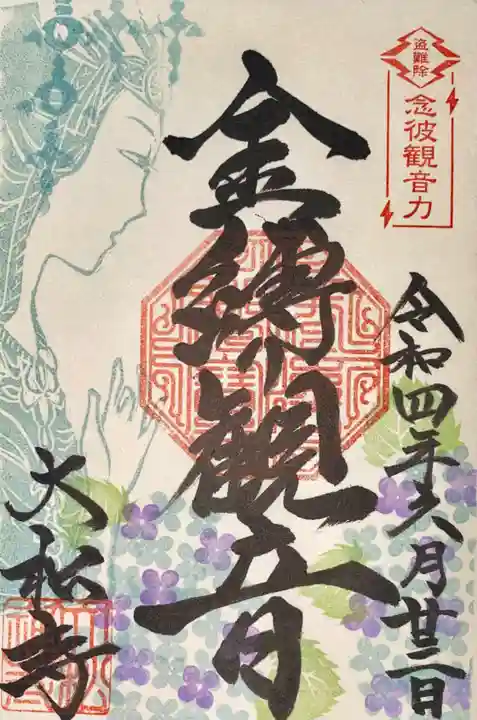 盗難除
念彼観音力
令和四年六月廿三日
金縛観音
大松寺